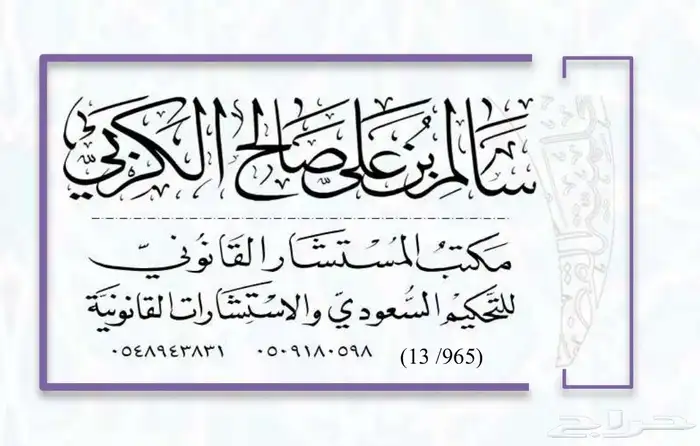 سَالم بن عَلي صَالح الكَربيّ
مَكتبُ المُسْتشَار القَانُونيّ
للتَّحكيْم السُّعودِيّ والاسْتِشَارات القانونيَّة
٠٥٤٨٩٤٣٨٣١ ٠٥٠٩١٨٠٥٩٨ (13 /965)
حراج